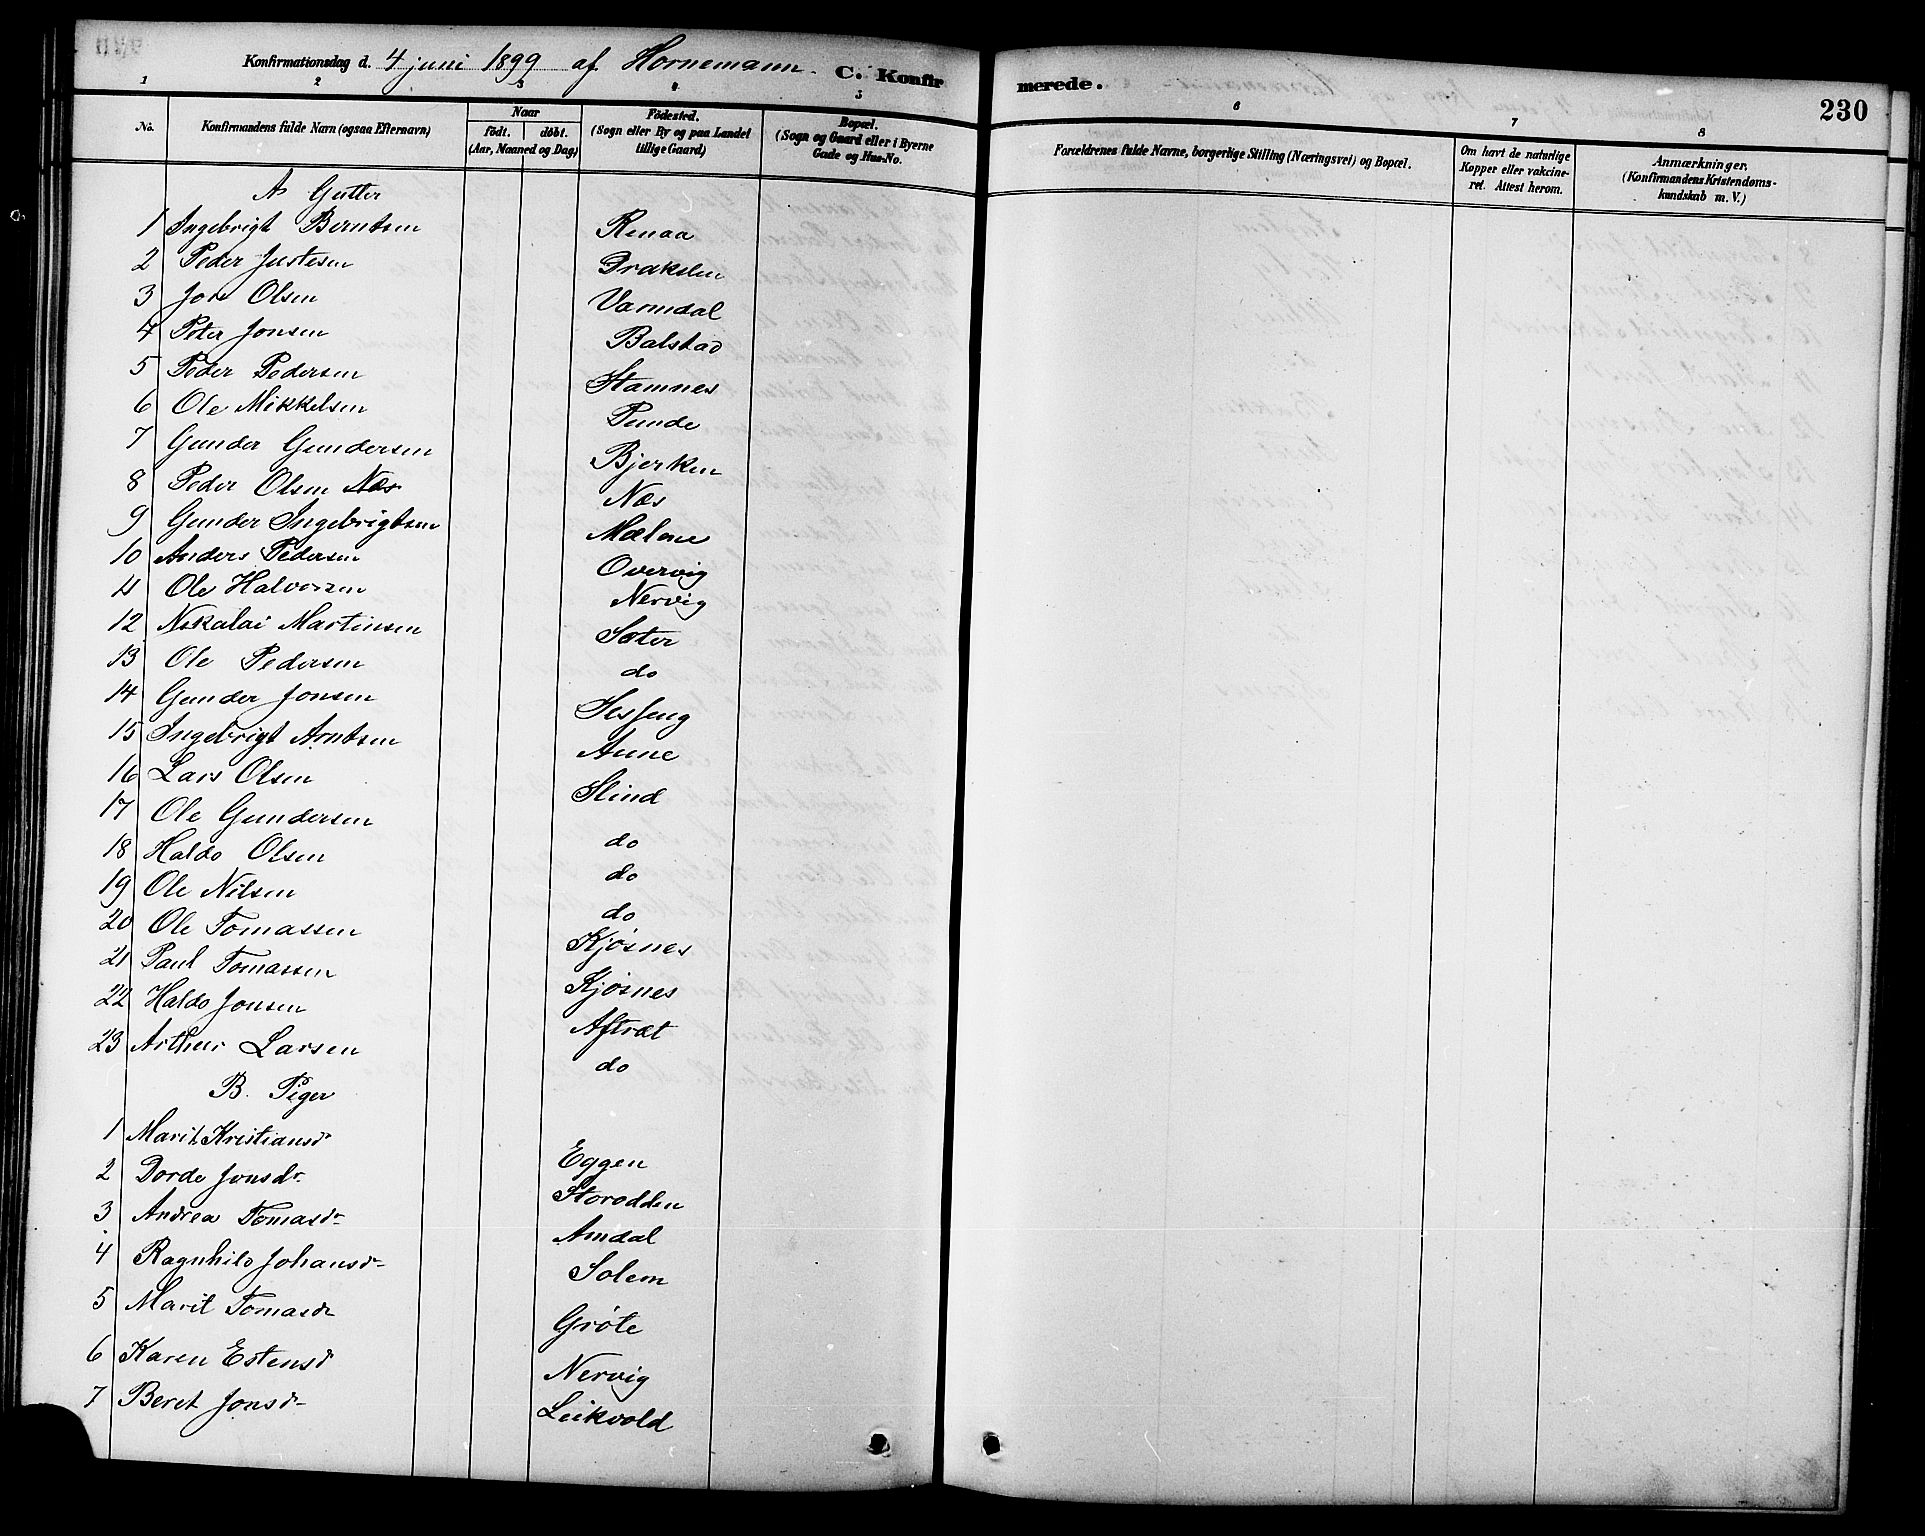 Konfirmationsdag d. 4 juni 1899 af Hornemann. C. Konfirmerede. 230
1 2 3 4 5 6 7 8
No. Konfirmandens fulde Navn (ogsaa Efternavn) Naar født. døbt. (Aar, Maaned og Dag) Fødested. (Sogn eller By og paa Landet tillige Gaard) Bopæl. (Sogn og Gaard eller i Byerne Gade og Hus-No. Forældrenes fulde Navne, borgerlige Stilling (Næringsvei) og Bopæl. Om havt de naturlige Kopper eller vakcineret. Attest herom. Anmærkninger. (Konfirmandens Kristendomskundskab m. V.)
A Gutter
1 Ingebrigt Berntsen Renaa
2 Peder Justesen Draksten
3 Jon Olsen Vamdal
4 Peter Jonsen Balstad
5 Peder Pedersen Stamnes
6 Ole Mikkelsen Punde
7 Gunder Gundersen Bjerken
8 Peder Olsen Næs Næs
9 Gunder Ingebrigtsen Mælene
10 Anders Pedersen Overvig
11 Ole Halvorsen Nervig
12 Nikolai Martinsen Sæter
13 Ole Pedersen do
14 Gunder Jonsen Sesseng
15 Ingebrigt Arntsen Aune
16 Lars Olsen Slind
17 Ole Gundersen do
18 Haldo Olsen do
19 Ole Nilsen do
20 Ole Tomassen Kjøsnes
21 Paul Tomassen Kjøsnes
22 Haldo Jonsen Aftræt
23 Arthur Larsen do
B. Piger
1 Marit Kristiansdr Eggen
2 Dorde Jonsdr. Storodden
3 Andrea Tomasdr Amdal
4 Ragnhild Johansdr Solem
5 Marit Tomasdr Grøte
6 Karen Estensdr Nervig
7 Beret Jonsdr Leikvold